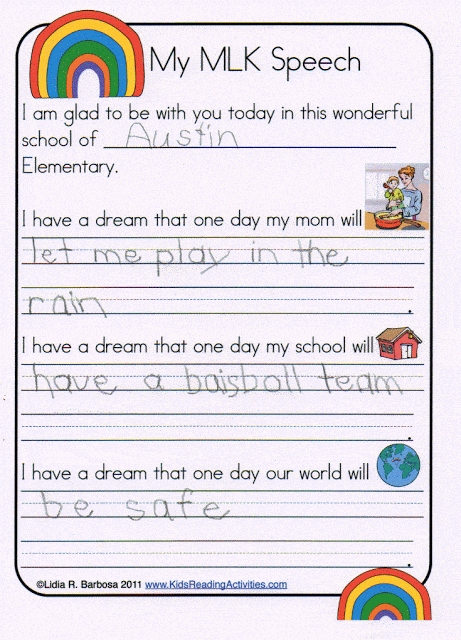 My MLK Speech
I am glad to be with you today in this wonderful
school of Austin
Elementary.
I have a dream that one day my mom will
let me play in the
rain.
I have a dream that one day my school will
have a baisboll team
.
I have a dream that one day our world will
be safe
.
©Lidia R. Barbosa 2011 www.KidsReadingActivities.com